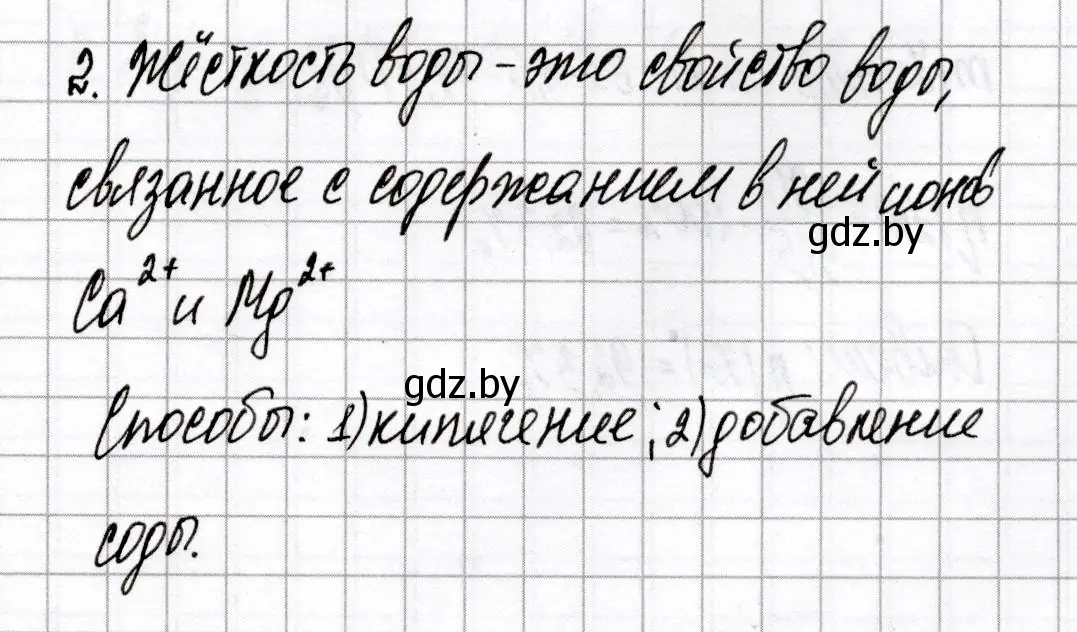 2. Жёсткость воды – это свойство воды,
связанное с содержанием в ней ионов
gdz.by
Ca²⁺ и Mg²⁺
gdz.by
Способы: 1) кипячение; 2) добавление
соды.